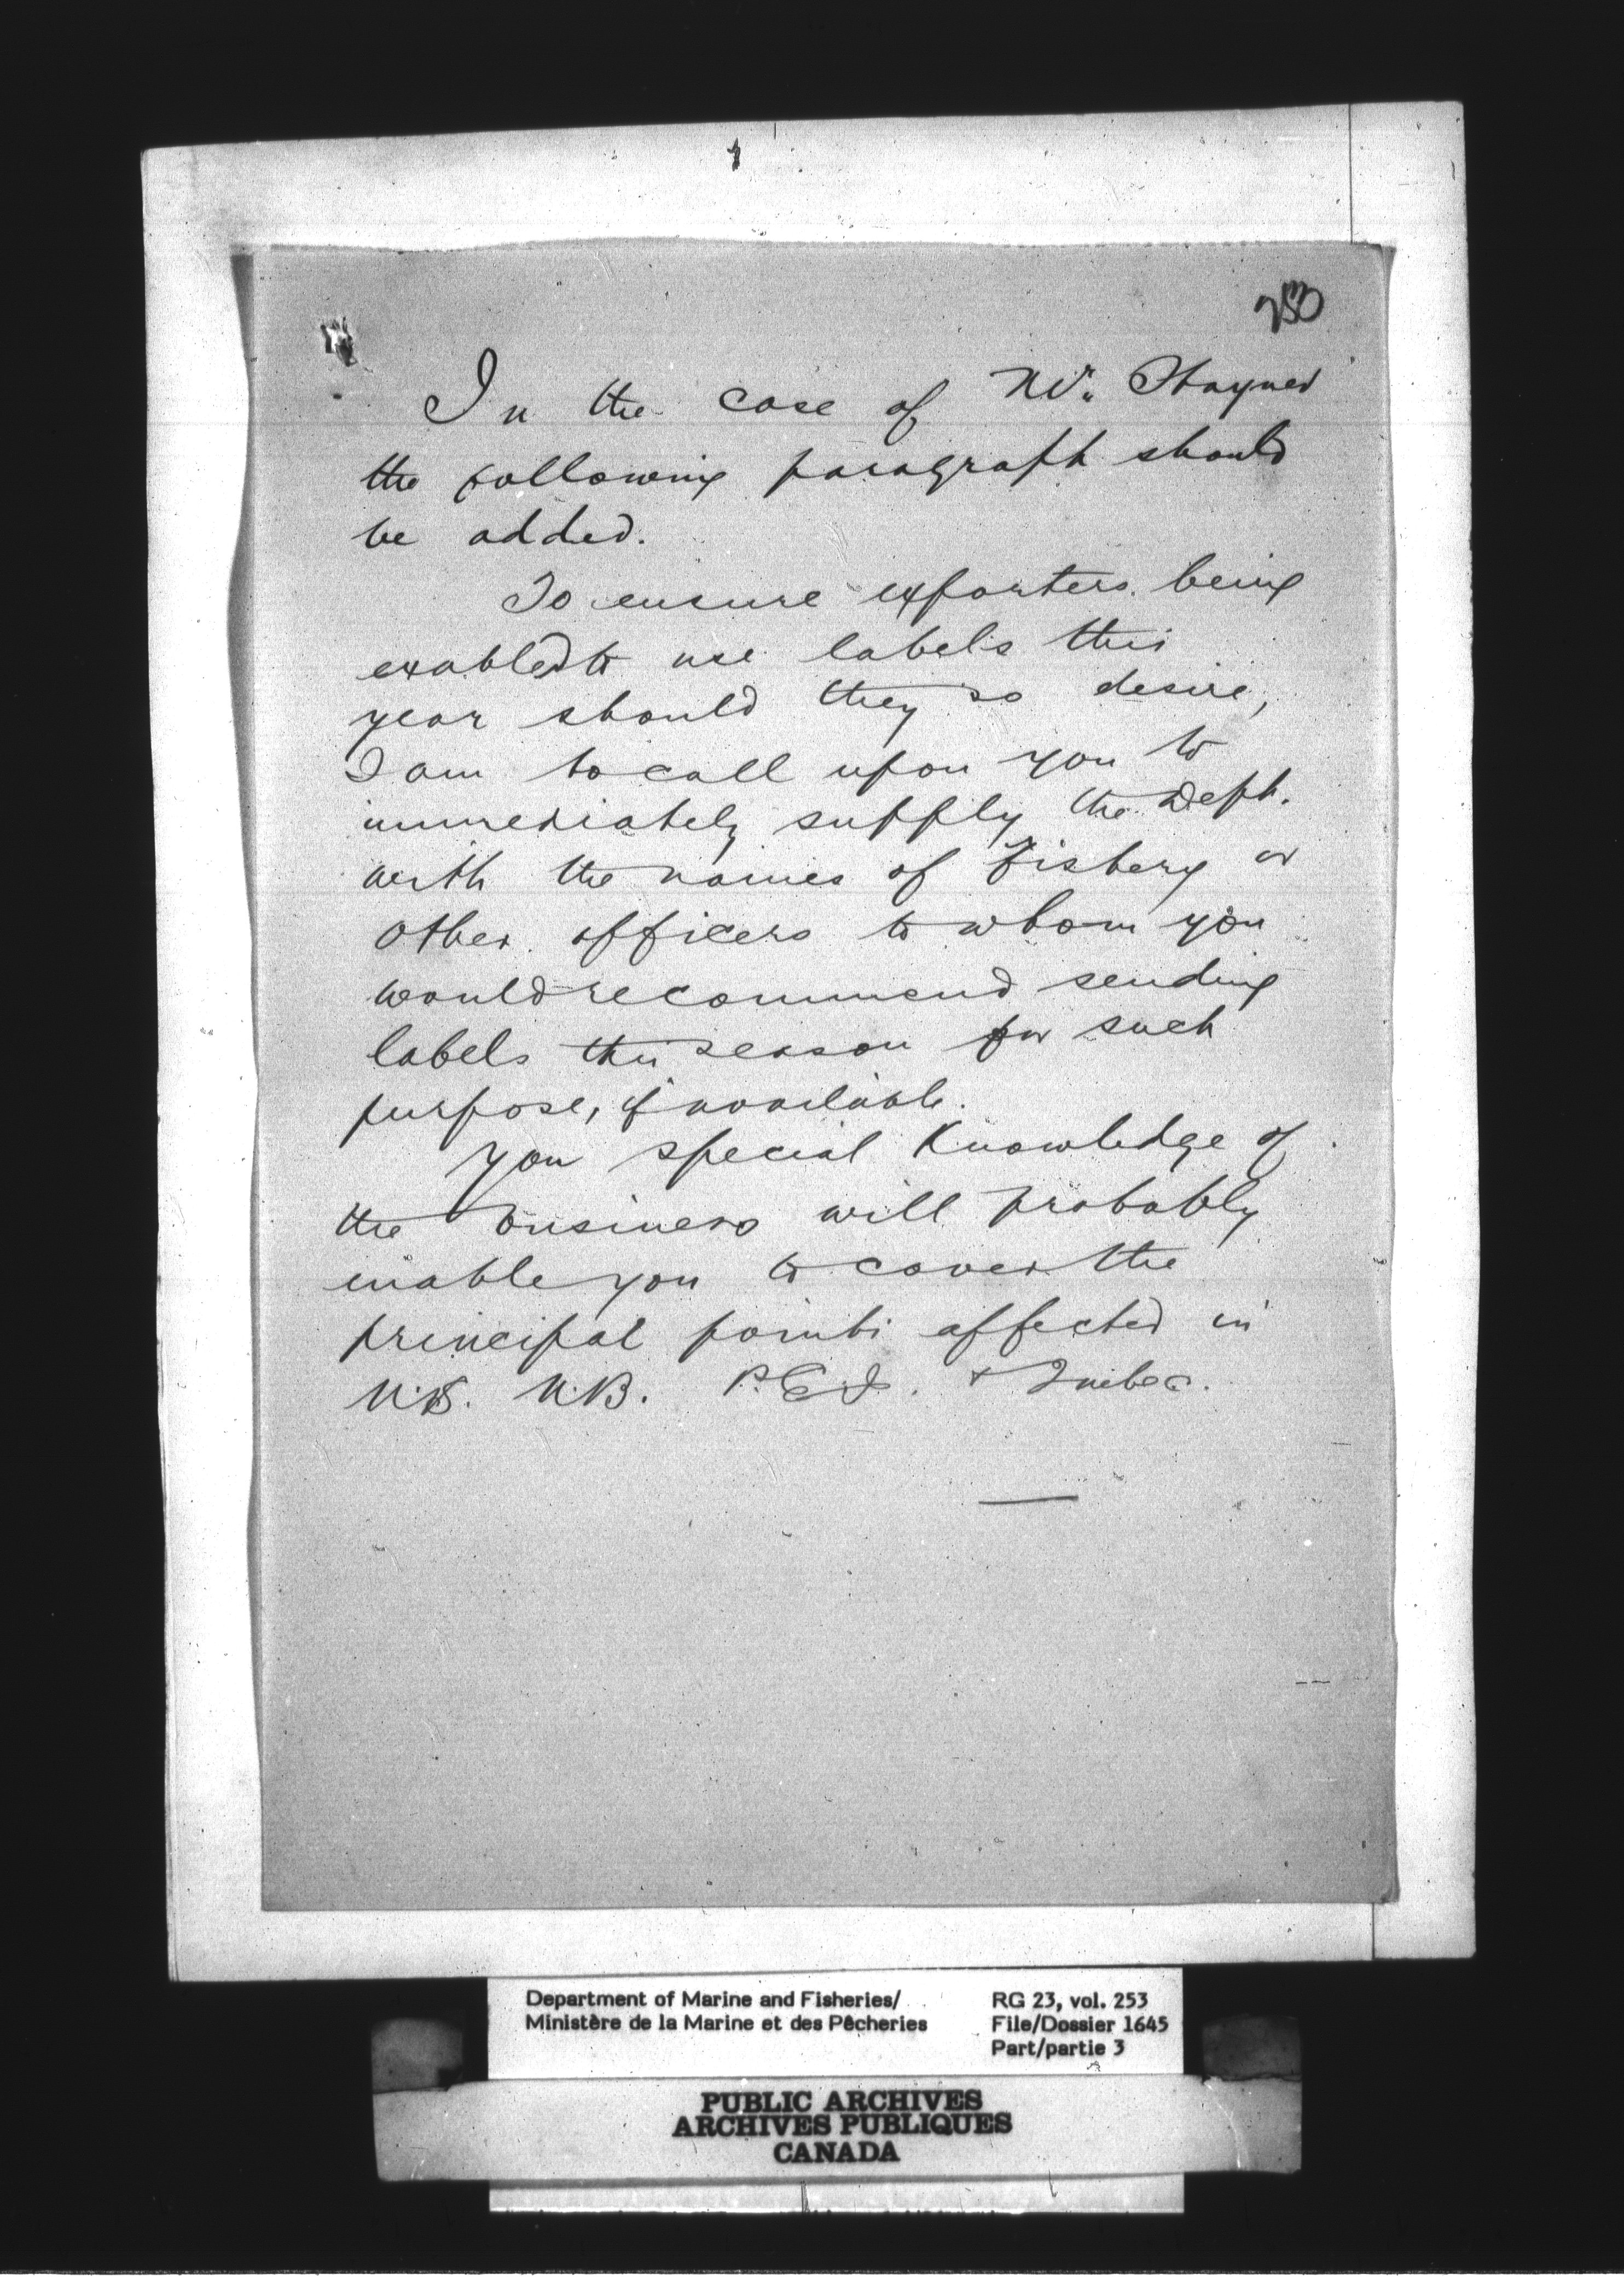 250
In the case of Mr. Stayner
the following paragraph should
be added.
To ensure exporters being
enabled to use labels this
year should they so desire,
I am to call upon you to
immediately supply the Dept.
with the names of Fishery or
other officers to whom you
would recommend sending
labels this season for such
purpose, if available.
Your special knowledge of
the business will probably
enable you to cover the
principal points affected in
N.S. N.B. P.E.I. & Quebec.
Department of Marine and Fisheries/
Ministère de la Marine et des Pêcheries
RG 23, vol. 253
File/Dossier 1645
Part/partie 3
PUBLIC ARCHIVES
ARCHIVES PUBLIQUES
CANADA